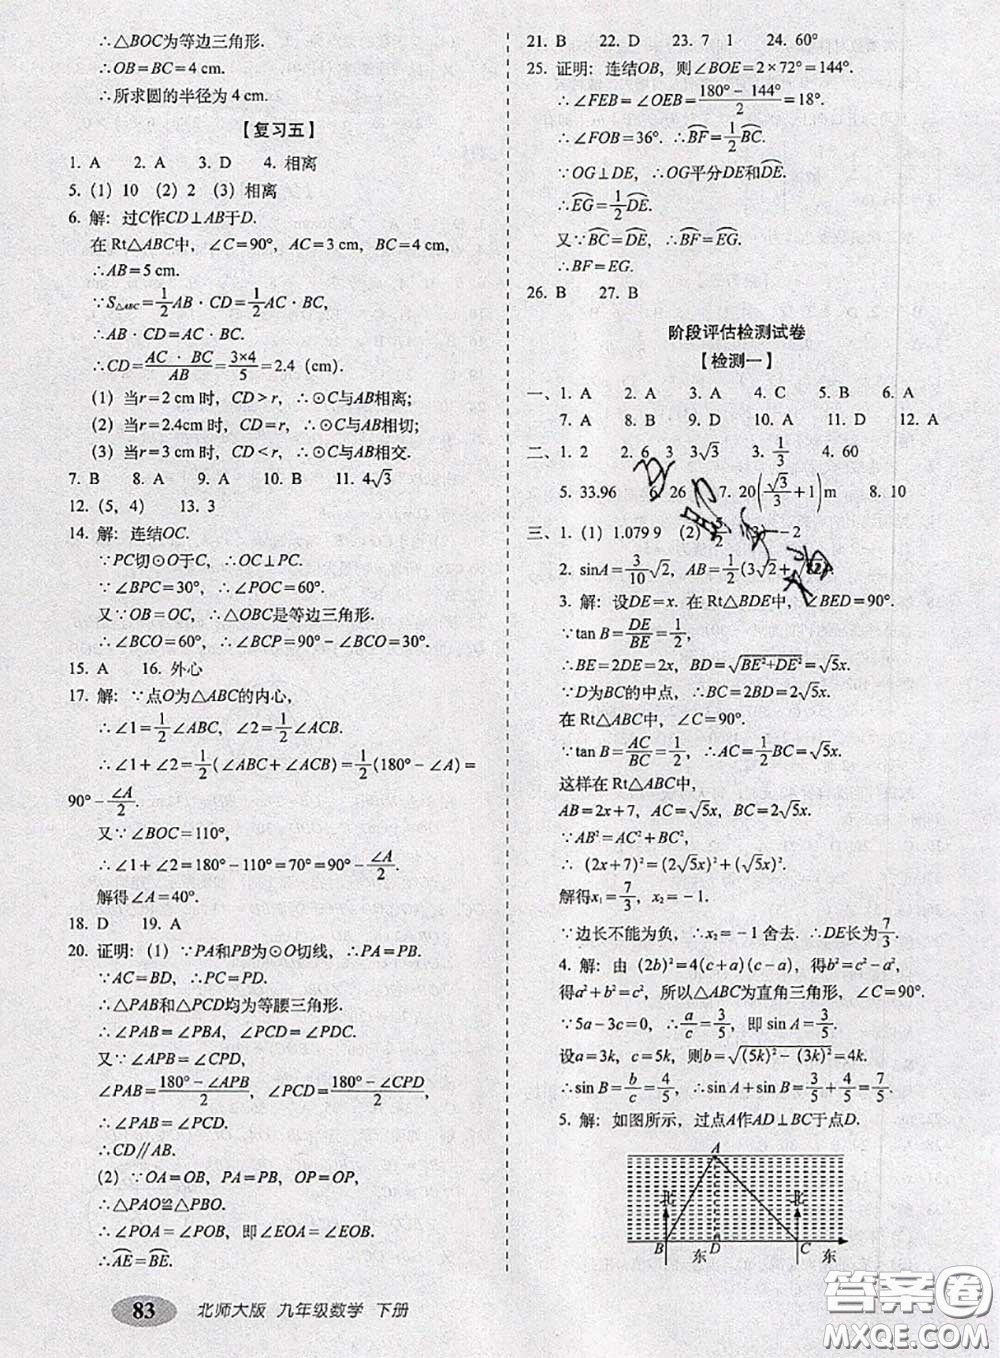 ∴△BOC为等边三角形.
∴OB=BC=4 cm.
∴所求圆的半径为 4 cm.
【复习五】
1. A  2. A  3. D  4. 相离
5. (1) 10  (2) 2  (3) 相离
6. 解：过C作CD⊥AB于D.
在 Rt△ABC中，∠C=90°，AC=3 cm，BC=4 cm，
∴AB=5 cm.
∵S△ABC=1/2AB·CD=1/2AC·BC，
∴AB·CD=AC·BC，
∴CD=AC·BC/AB=3×4/5=2.4 (cm).
(1) 当r=2 cm 时，CD>r，∴⊙C与AB相离；
(2) 当r=2.4cm 时，CD=r，∴⊙C与AB相切；
(3) 当r=3 cm 时，CD<r，∴⊙C与AB相交.
7. B  8. A  9. A  10. B  11. 4√3
12. (5，4)  13. 3
14. 解：连结OC.
∵PC切⊙O于C，∴OC⊥PC，
∵∠BPC=30°，∴∠BOC=60°.
又∵OB=OC，∴△OBC是等边三角形.
∴∠BCO=60°，∴∠BCP=90°-∠BCO=30°.
15. A  16. 外心
17. 解：∵点O为△ABC的内心，
∴∠1=1/2∠ABC，∠2=1/2∠ACB.
∴∠1+∠2=1/2(∠ABC+∠ACB)=1/2(180°-∠A)=
90°-∠A/2.
又∵∠BOC=110°，
∴∠1+∠2=180°-110°=70°=90°-∠A/2.
解得∠A=40°.
18. D  19. A
20. 证明：(1) ∵PA和PB为⊙O切线，∴PA=PB.
∵AC=BD，∴PC=PD.
∴△PAB和△PCD均为等腰三角形.
∴∠PAB=∠PBA，∠PCD=∠PDC.
又∵∠APB=∠CPD，
∠PAB=(180°-∠APB)/2，∠PCD=(180°-∠CPD)/2，
∴∠PAB=∠PCD.
∴CD∥AB.
(2) ∵OA=OB，PA=PB，OP=OP，
∴△PAO≌△PBO.
∴∠POA=∠POB，即∠EOA=∠EOB.
∴⌒AE=⌒BE.
83 北师大版 九年级数学 下册
21. B  22. D  23. 7 1  24. 60°
25. 证明：连结OB，则∠BOE=2×72°=144°.
∴∠FEB=∠OEB=(180°-144°)/2=18°.
∴∠FOB=36°. ∴⌒BF=1/2⌒BC.
∵OG⊥DE，∴OG平分DE和⌒DE.
∴⌒EG=1/2⌒DE.
又∵⌒BC=⌒DE，∴⌒BF=⌒EG.
∴BF=EG.
26. B  27. B
阶段评估检测试卷
【检测一】
一、1. A  2. A  3. A  4. C  5. B  6. A
7. A  8. B  9. D  10. A  11. D  12. A
二、1. 2  2. 6 3 3√3  3. 1/3  4. 60
5. 33.96  6. 26  7. 20(√3/3+1)m  8. 10
三、1. (1) 1.079 9  (2) 5/2  (3) -2
2. sinA=3/10√2，AB=1/2(3√2+
3. 解：设DE=x. 在 Rt△BDE中，∠BED=90°.
∵tan B=DE/BE=1/2，
∴BE=2DE=2x，BD=√(BE²+DE²)=√5x.
∵D为BC的中点，∴BC=2BD=2√5x.
在 Rt△ABC中，∠C=90°.
∵tan B=AC/BC=1/2，∴AC=1/2BC=√5x.
这样在 Rt△ABC中，
AB=2x+7，AC=√5x，BC=2√5x.
∵AB²=AC²+BC²，
∴ (2x+7)²=(2√5x)²+(√5x)².
解得x₁=7/3，x₂=-1.
∵边长不能为负，∴x₂=-1 舍去. ∴DE长为7/3.
4. 解：由 (2b)²=4(c+a)(c-a)，得b²=c²-a²，
得a²+b²=c²，所以△ABC为直角三角形，∠C=90°.
∵5a-3c=0，∴a/c=3/5，即 sin A=3/5.
设a=3k，c=5k，则b=√((5k)²-(3k)²)=4k.
∴sin B=b/c=4/5，∴sin A+sin B=3/5+4/5=7/5.
5. 解：如图所示，过点A作AD⊥BC于点D.
A
北 北
B 东 D C 东
答案圈
MXQE.COM